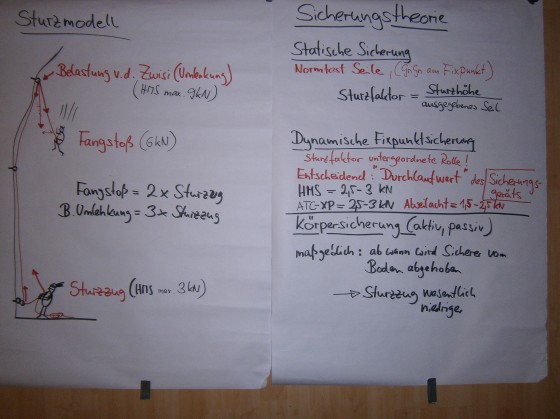 Sturzmodell
Belastung v.d. Zwisi (Umlenkung)
(HMS max. 9kN)
Fangstoß (6kN)
Fangstoß = 2 x Sturzzug
B.Umlenkung = 3 x Sturzzug
Sturzzug (HMS max. 3kN)
Sicherungstheorie
Statische Sicherung
Normtest Seile,
am Fixpunkt)
Sturzfaktor = Sturzhöhe
ausgegebenes Seil
Dynamische Fixpunktsicherung
Sturzfaktor untergeordnete Rolle!
Entscheidend: "Durchlaufwert" des Sicherungs-
geräts
HMS = 2,5-3 kN
ATC-XP = 2,5-3 kN Abseilacht = 1,5-2,5 kN
Körpersicherung (aktiv, passiv)
maßgeblich: ab wann wird Sicherer vom
Boden abgehoben
→ Sturzzug wesentlich
niedriger